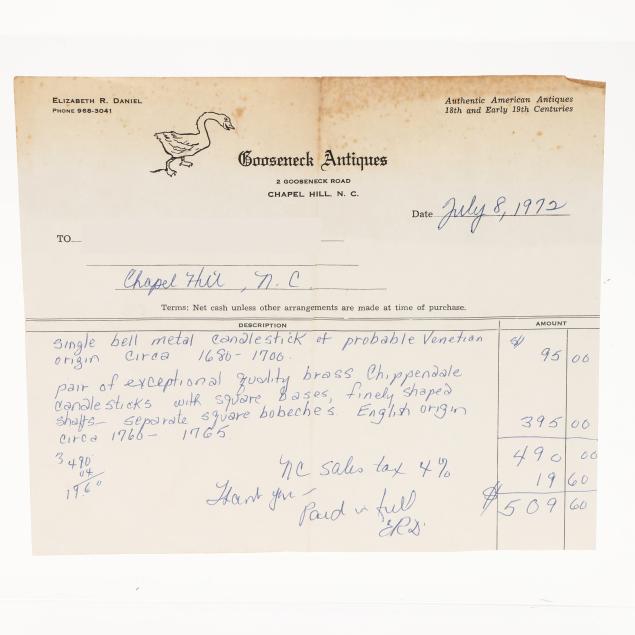 ELIZABETH R. DANIEL
PHONE 968-3041
Authentic American Antiques
18th and Early 19th Centuries
Gooseneck Antiques
2 GOOSENECK ROAD
CHAPEL HILL, N. C.
Date July 8, 1972
TO
Chapel Hill, N.C.
Terms: Net cash unless other arrangements are made at time of purchase.
DESCRIPTION AMOUNT
single bell metal candlestick of probable Venetian
origin circa 1680-1700. $ 95 00
pair of exceptional quality brass Chippendale
candlesticks with square bases, finely shaped
shafts- separate square bobeches. English origin 395 00
circa 1760- 1765
490 00
3 490
04
1960
NC sales tax 4% 19 60
Thank you-
Paid in full $ 509 60
ERD.